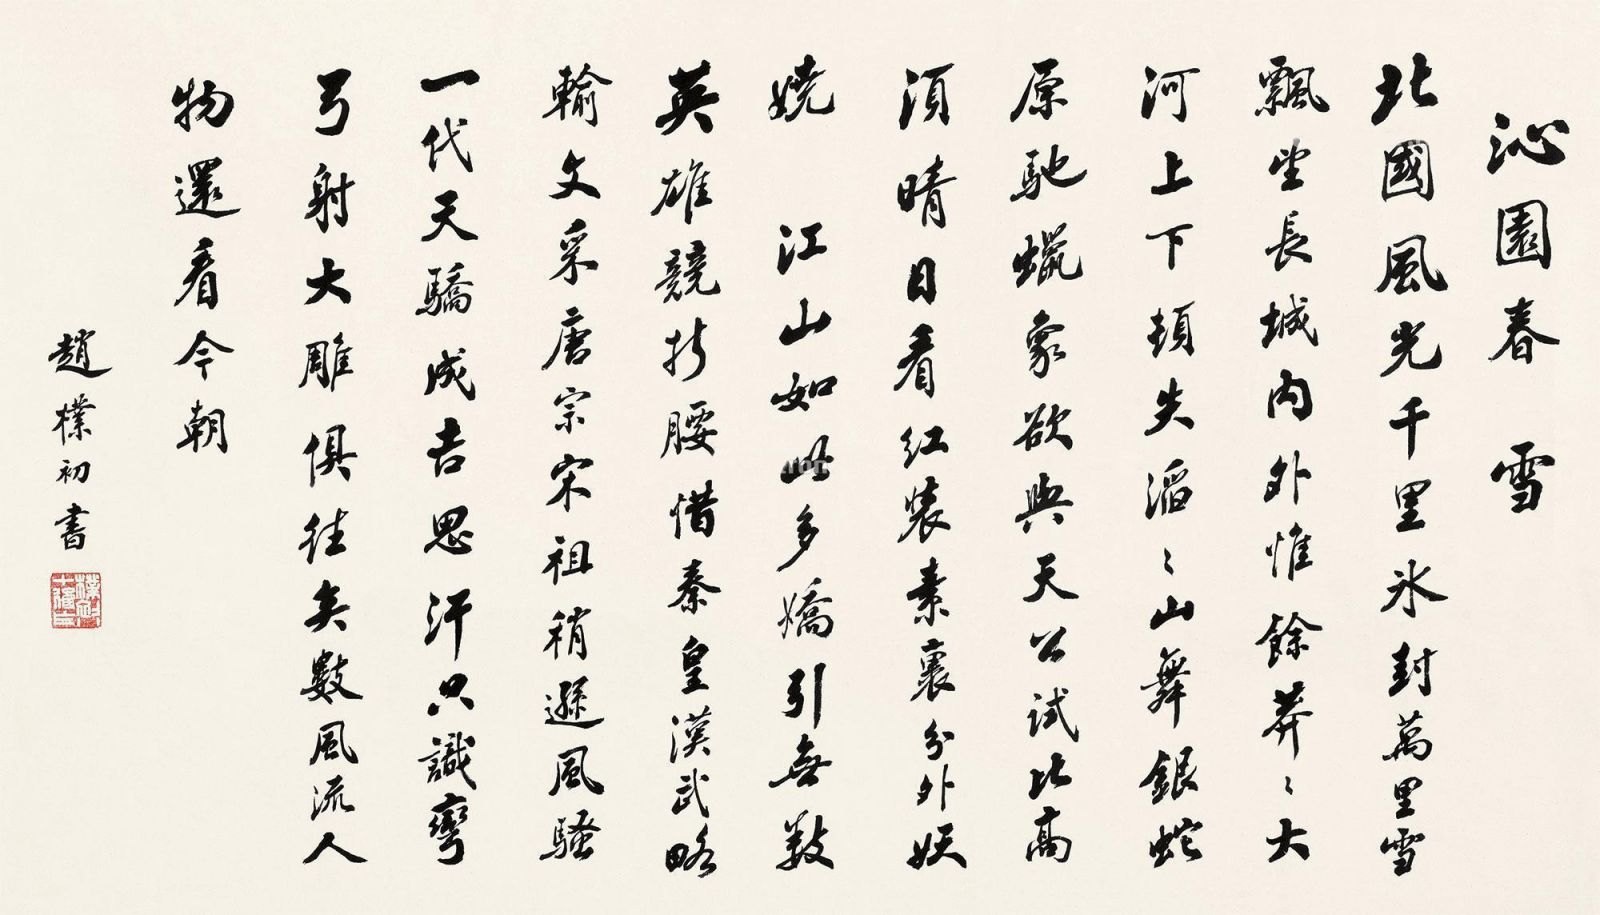 沁園春 雪
北國風光千里冰封萬里雪
飄望長城内外惟餘莽〻大
河上下頓失滔〻山舞銀蛇
原馳蠟象欲與天公試比高
須晴日看紅裝素裹分外妖
嬈 江山如此多嬌引無數
英雄競折腰惜秦皇漢武略
輸文采唐宗宋祖稍遜風騷
一代天驕成吉思汗只識彎
弓射大雕俱往矣數風流人
物還看今朝
趙樸初書